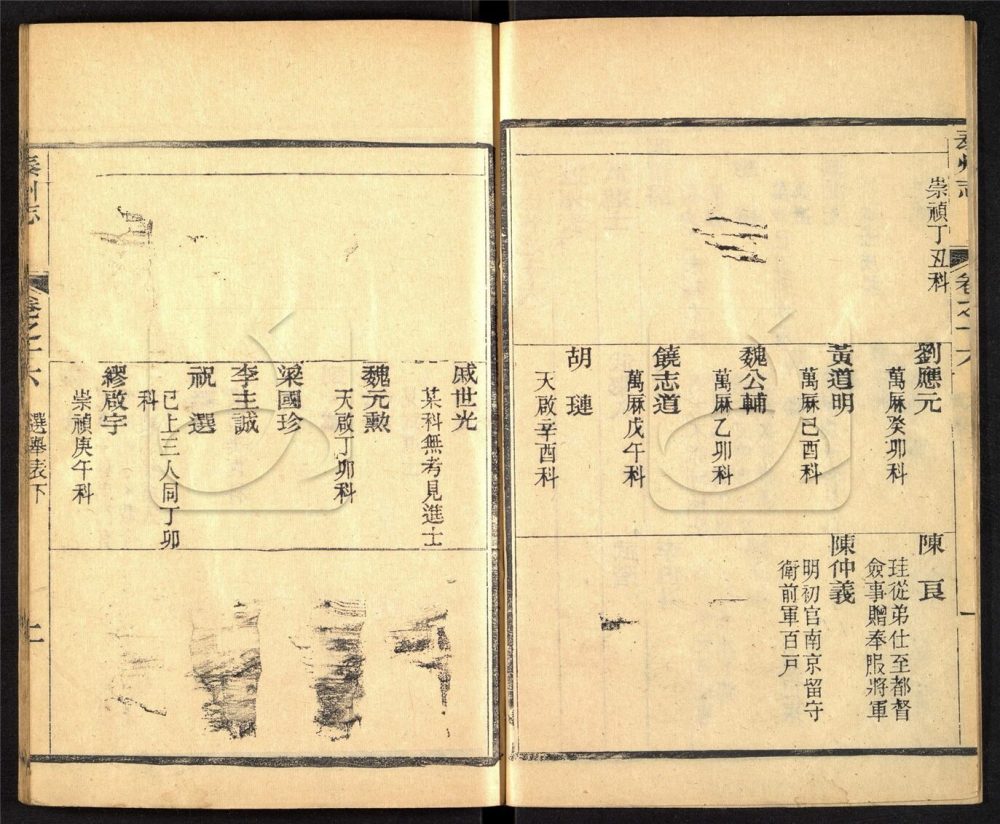 泰州志
卷之十六
崇禎丁丑科
劉應元
萬厤癸卯科
黃道明
萬厤己酉科
魏公輔
萬厤乙卯科
饒志道
萬厤戊午科
胡璉
天啟辛酉科
陳㫰
珪從弟仕至都督
僉事贈奉服將軍
陳仲義
明初官南京留守
衛前軍百戸
戚世光
某科無考見進士
魏元勲
天啟丁卯科
梁國珍
李主誠
祝選
已上三人同丁卯
科
繆啟宇
崇禎庚午科
泰州志
卷之十六
選舉表下